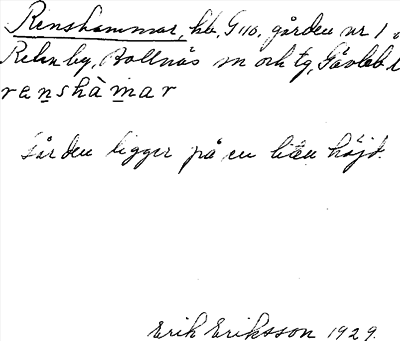 Renshammar, hb, G 110, gården nr 1 i
Rehn by, Bollnäs sn och tg, Gävleb l
renshàmar
Gården ligger på en liten höjd.
Erik Eriksson 1929.